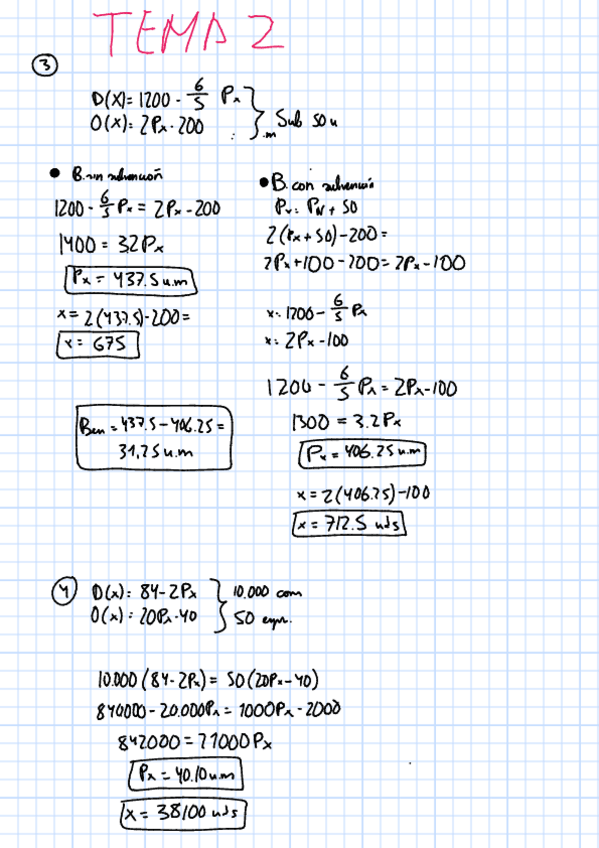 TEMA 2
3
D(X)= 1200 - 6/5 Px
O(X): 2Px - 200
Sub 50 u.m
• B. sin subvención
1200 - 6/5 Px = 2Px - 200
1400 = 3.2 Px
Px = 437.5 u.m
x = 2(437.5) - 200 =
x = 675
Ben = 437.5 - 406.25 =
31,25 u.m
• B. con subvención
Pv = PN + 50
2(Px + 50) - 200 =
2Px + 100 - 200 = 2Px - 100
x: 1200 - 6/5 Px
x: 2Px - 100
1200 - 6/5 Px = 2Px - 100
1300 = 3.2 Px
Px = 406.25 u.m
x = 2(406.25) - 100
x = 712.5 uds
4
D(x): 84 - 2Px
O(x): 20Px - 40
10.000 com
50 empr.
10.000 (84 - 2Px) = 50 (20Px - 40)
840000 - 20.000Px = 1000Px - 2000
842000 = 21000 Px
Px = 40.10 u.m
x = 38100 uds